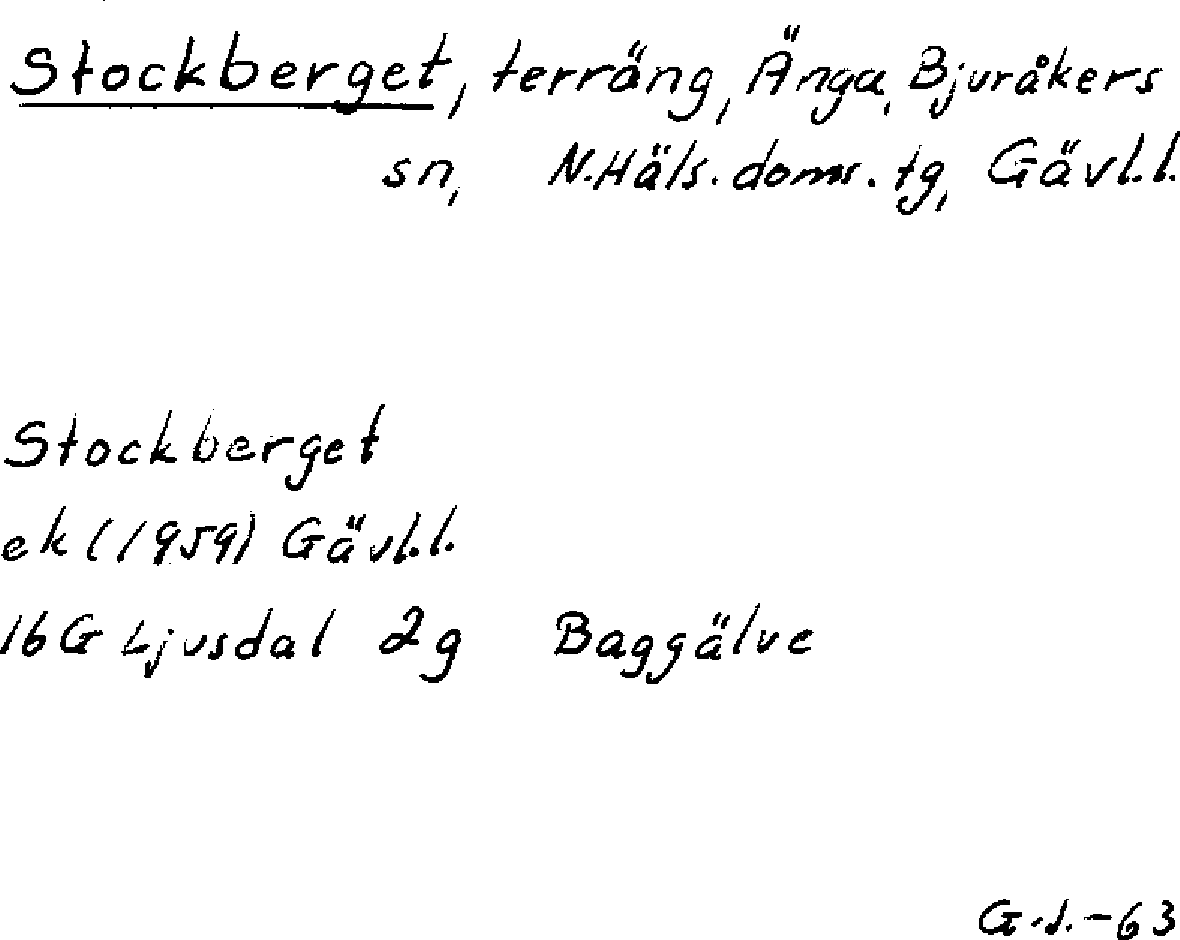 Stockberget, terräng, Änga, Bjuråkers
sn, N.Häls.doms.tg, Gävl.l.
Stockberget
ek (1959) Gävl.l.
16G Ljusdal 2g Baggälve
G.J.-63